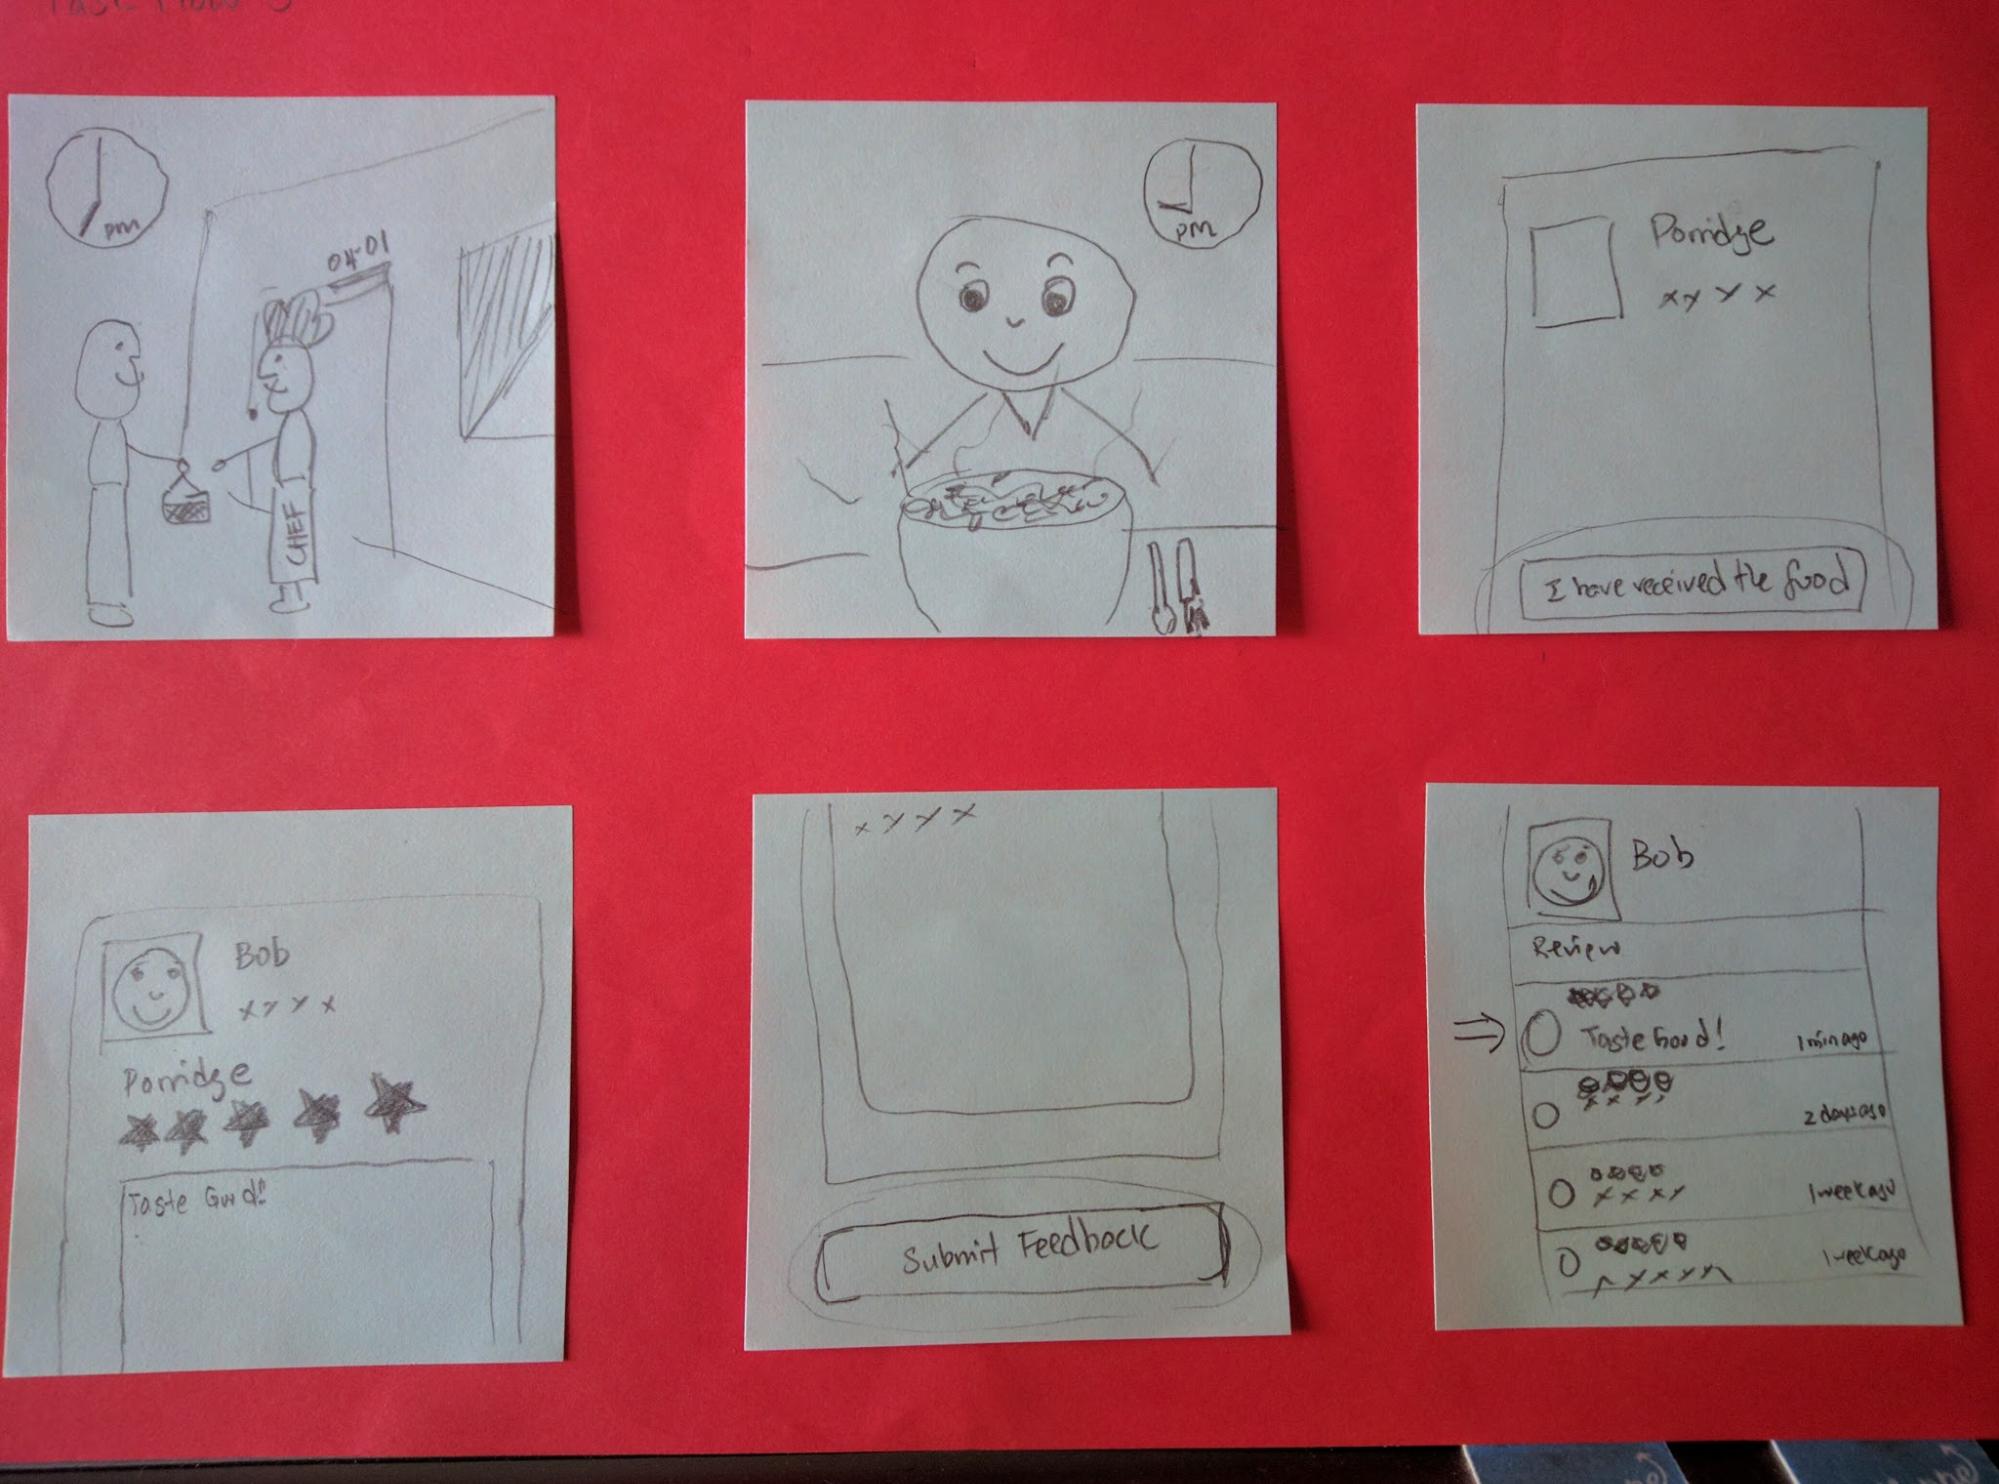 Task Flow 3
pm
04-01
CHEF
pm
Porridge
xxxx
I have received the food
Bob
xxxx
Porridge
Taste Good!
xxxx
Submit Feedback
Bob
Review
Taste Good!
1 min ago
xxxx
2 days ago
xxxx
1 week ago
1 week ago